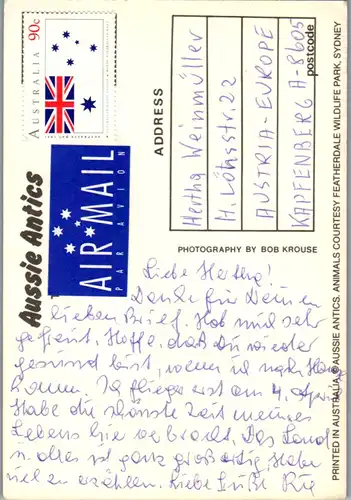 AUSTRALIA 90c
Aussie Antics
AIR MAIL
PAR AVION
ADDRESS
Hertha Weinmüller
H. Lönsstr. 22
AUSTRIA-EUROPE
KAPFENBERG A-8605
postcode
PHOTOGRAPHY BY BOB KROUSE
PRINTED IN AUSTRALIA. © AUSSIE ANTICS. ANIMALS COURTESY FEATHERDALE WILDLIFE PARK, SYDNEY
Liebe Hertha!
Danke für Deinen
lieben Brief. Hab mich sehr
gefreut. Hoffe, daß Du wieder
gesund bist, wenn ich nach Hause
komme. Ich fliege erst am 4. April
Habe die schönste Zeit meines
Lebens hier verbracht. Das Land
u. alles ist ganz großartig. Habe
viel zu erzählen. Liebe Grüße